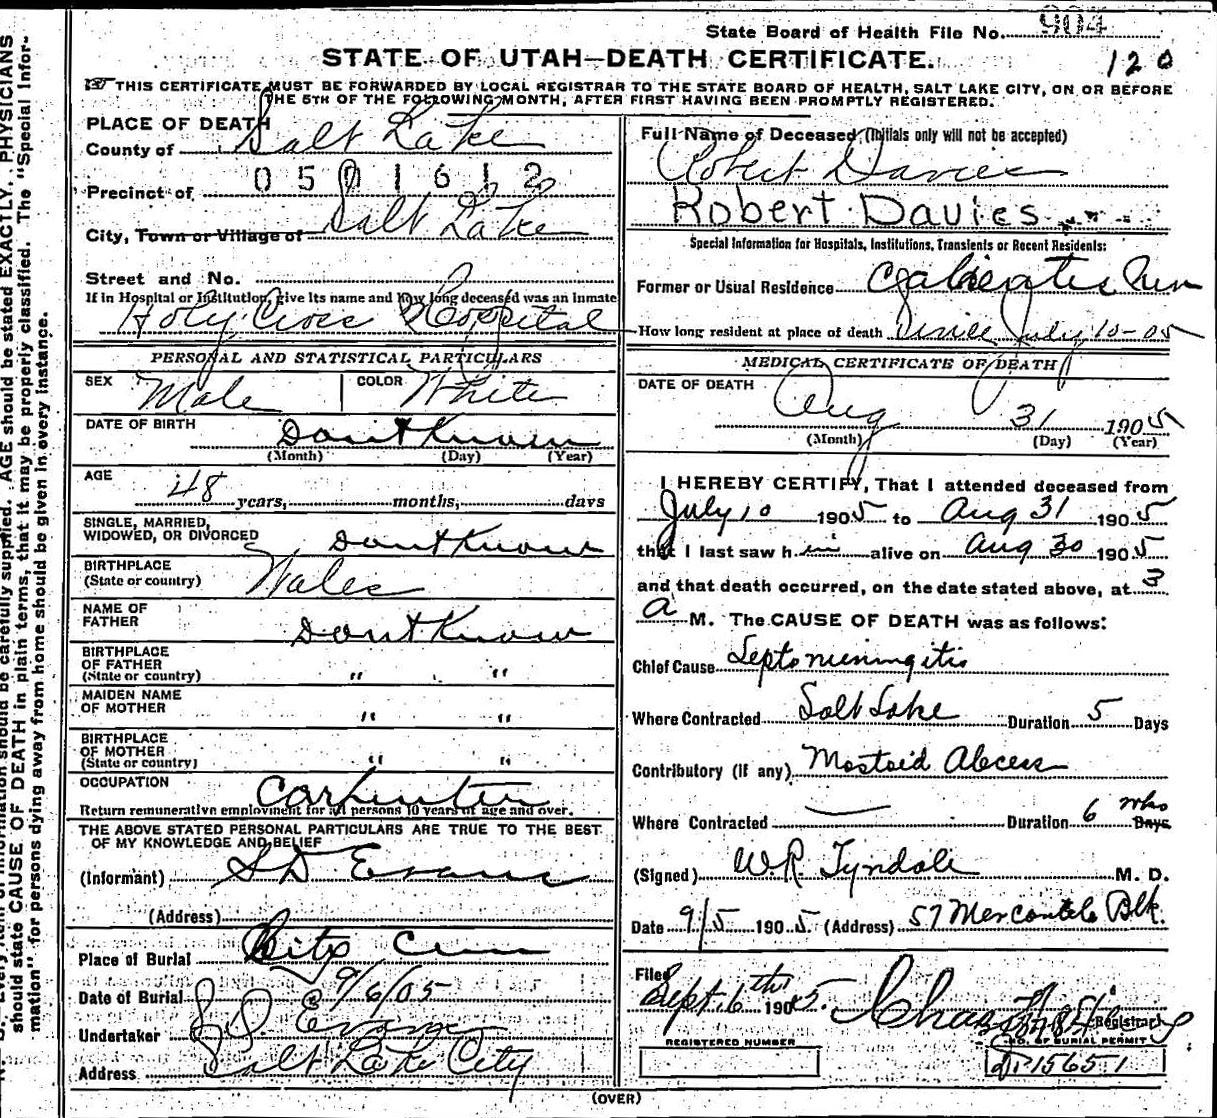 State Board of Health File No. 904
STATE OF UTAH—DEATH CERTIFICATE.
120
THIS CERTIFICATE MUST BE FORWARDED BY LOCAL REGISTRAR TO THE STATE BOARD OF HEALTH, SALT LAKE CITY, ON OR BEFORE
THE 5TH OF THE FOLLOWING MONTH, AFTER FIRST HAVING BEEN PROMPTLY REGISTERED.
PLACE OF DEATH
County of Salt Lake
Precinct of 0501612
City, Town or Village of Salt Lake
Street and No.
If in Hospital or Institution, give its name and how long deceased was an inmate
Holy Cross Hospital
PERSONAL AND STATISTICAL PARTICULARS
SEX Male COLOR White
DATE OF BIRTH Dont Know
(Month) (Day) (Year)
AGE 48 years, months, days
SINGLE, MARRIED,
WIDOWED, OR DIVORCED Dont Know
BIRTHPLACE
(State or country) Wales
NAME OF
FATHER Dont Know
BIRTHPLACE
OF FATHER
(State or country) " "
MAIDEN NAME
OF MOTHER " "
BIRTHPLACE
OF MOTHER
(State or country) " "
OCCUPATION Carpenter
Return remunerative employment for all persons 10 years of age and over.
THE ABOVE STATED PERSONAL PARTICULARS ARE TRUE TO THE BEST
OF MY KNOWLEDGE AND BELIEF
(Informant) S D Evans
(Address)
Place of Burial City Cem
Date of Burial 9/6/05
Undertaker S.D. Evans
Address Salt Lake City
Full Name of Deceased (Initials only will not be accepted)
Robert Davies
Robert Davies
Special Information for Hospitals, Institutions, Transients or Recent Residents:
Former or Usual Residence
How long resident at place of death Since July 10-05
MEDICAL CERTIFICATE OF DEATH
DATE OF DEATH
Aug 31 1905
(Month) (Day) (Year)
I HEREBY CERTIFY, That I attended deceased from
July 10 1905 to Aug 31 1905
that I last saw him alive on Aug 30 1905
and that death occurred, on the date stated above, at 3
a M. The CAUSE OF DEATH was as follows:
Chief Cause Leptomeningitis
Where Contracted Salt Lake Duration 5 Days
Contributory (if any) Mastoid Abcess
Where Contracted — Duration 6 wks Days
(Signed) W.R. Tyndale M. D.
Date 9/5 1905 (Address) 57 Mercantile Blk.
Filed
Sept. 6th 1905. Chas
Registrar
REGISTERED NUMBER
NO. OF BURIAL PERMIT
15651
(OVER)
should be carefully supplied. AGE should be stated EXACTLY. PHYSICIANS
should state CAUSE OF DEATH in plain terms, that it may be properly classified. The "Special Infor-
mation" for persons dying away from home should be given in every instance.